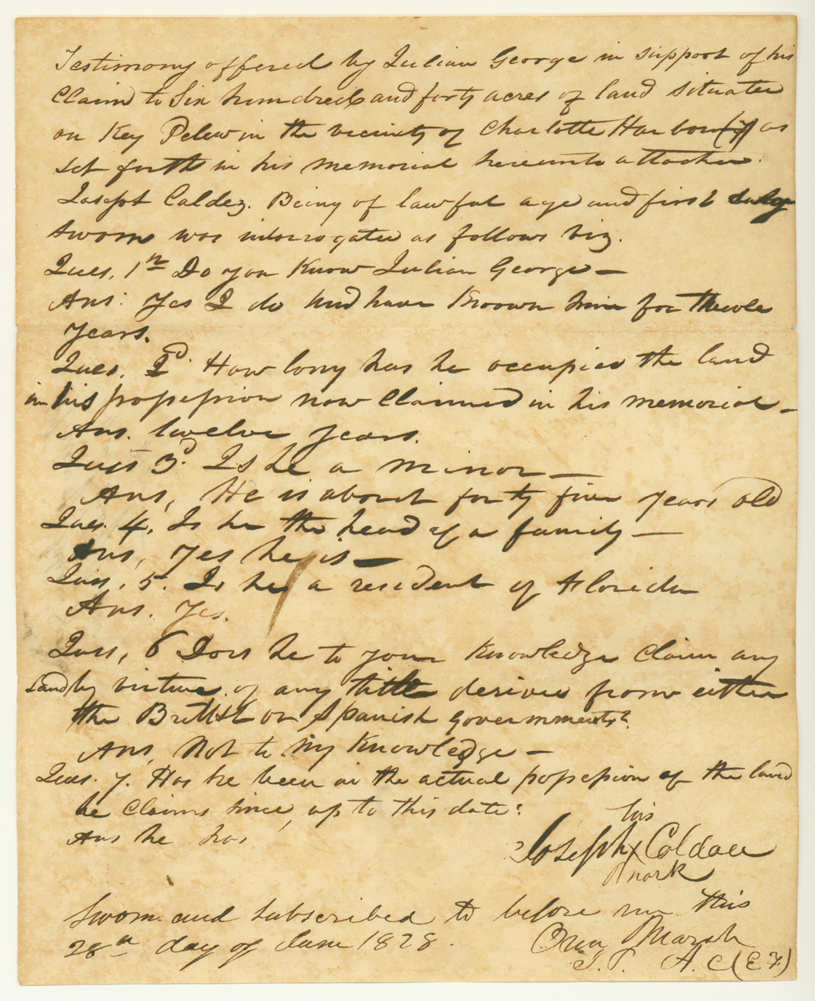 Testimony offered by Julian George in support of his
Claim to Six hundred and forty acres of land situated
on Key Pelew in the vicinity of Charlotte Harbour as
set forth in his memorial hereunto attached.
Joseph Caldez. Being of lawful age and first duly
Sworn was interrogated as follows viz.
Ques. 1st Do you Know Julian George —
Ans: Yes I do and have Known him for twelve
years.
Ques. 2d. How long has he occupied the land
in his possession now Claimed in his memorial —
Ans. twelve years.
Ques 3d. Is he a minor —
Ans, He is about forty five years old
Ques. 4. Is he the head of a family —
Ans, Yes he is —
Ques, 5. Is he a resident of Florida
Ans. Yes.
Ques, 6 Does he to your Knowledge Claim any
Land by virtue of any title derived from either
the British or Spanish governments?
Ans, Not to my Knowledge —
Ques. 7. Has he been in the actual possession of the land
he Claims since, up to this date?
Ans he has
his
Joseph X Caldez
mark
Sworn and Subscribed to before me this
28th day of June 1828.
Marsh
J. P. A. C (E F)